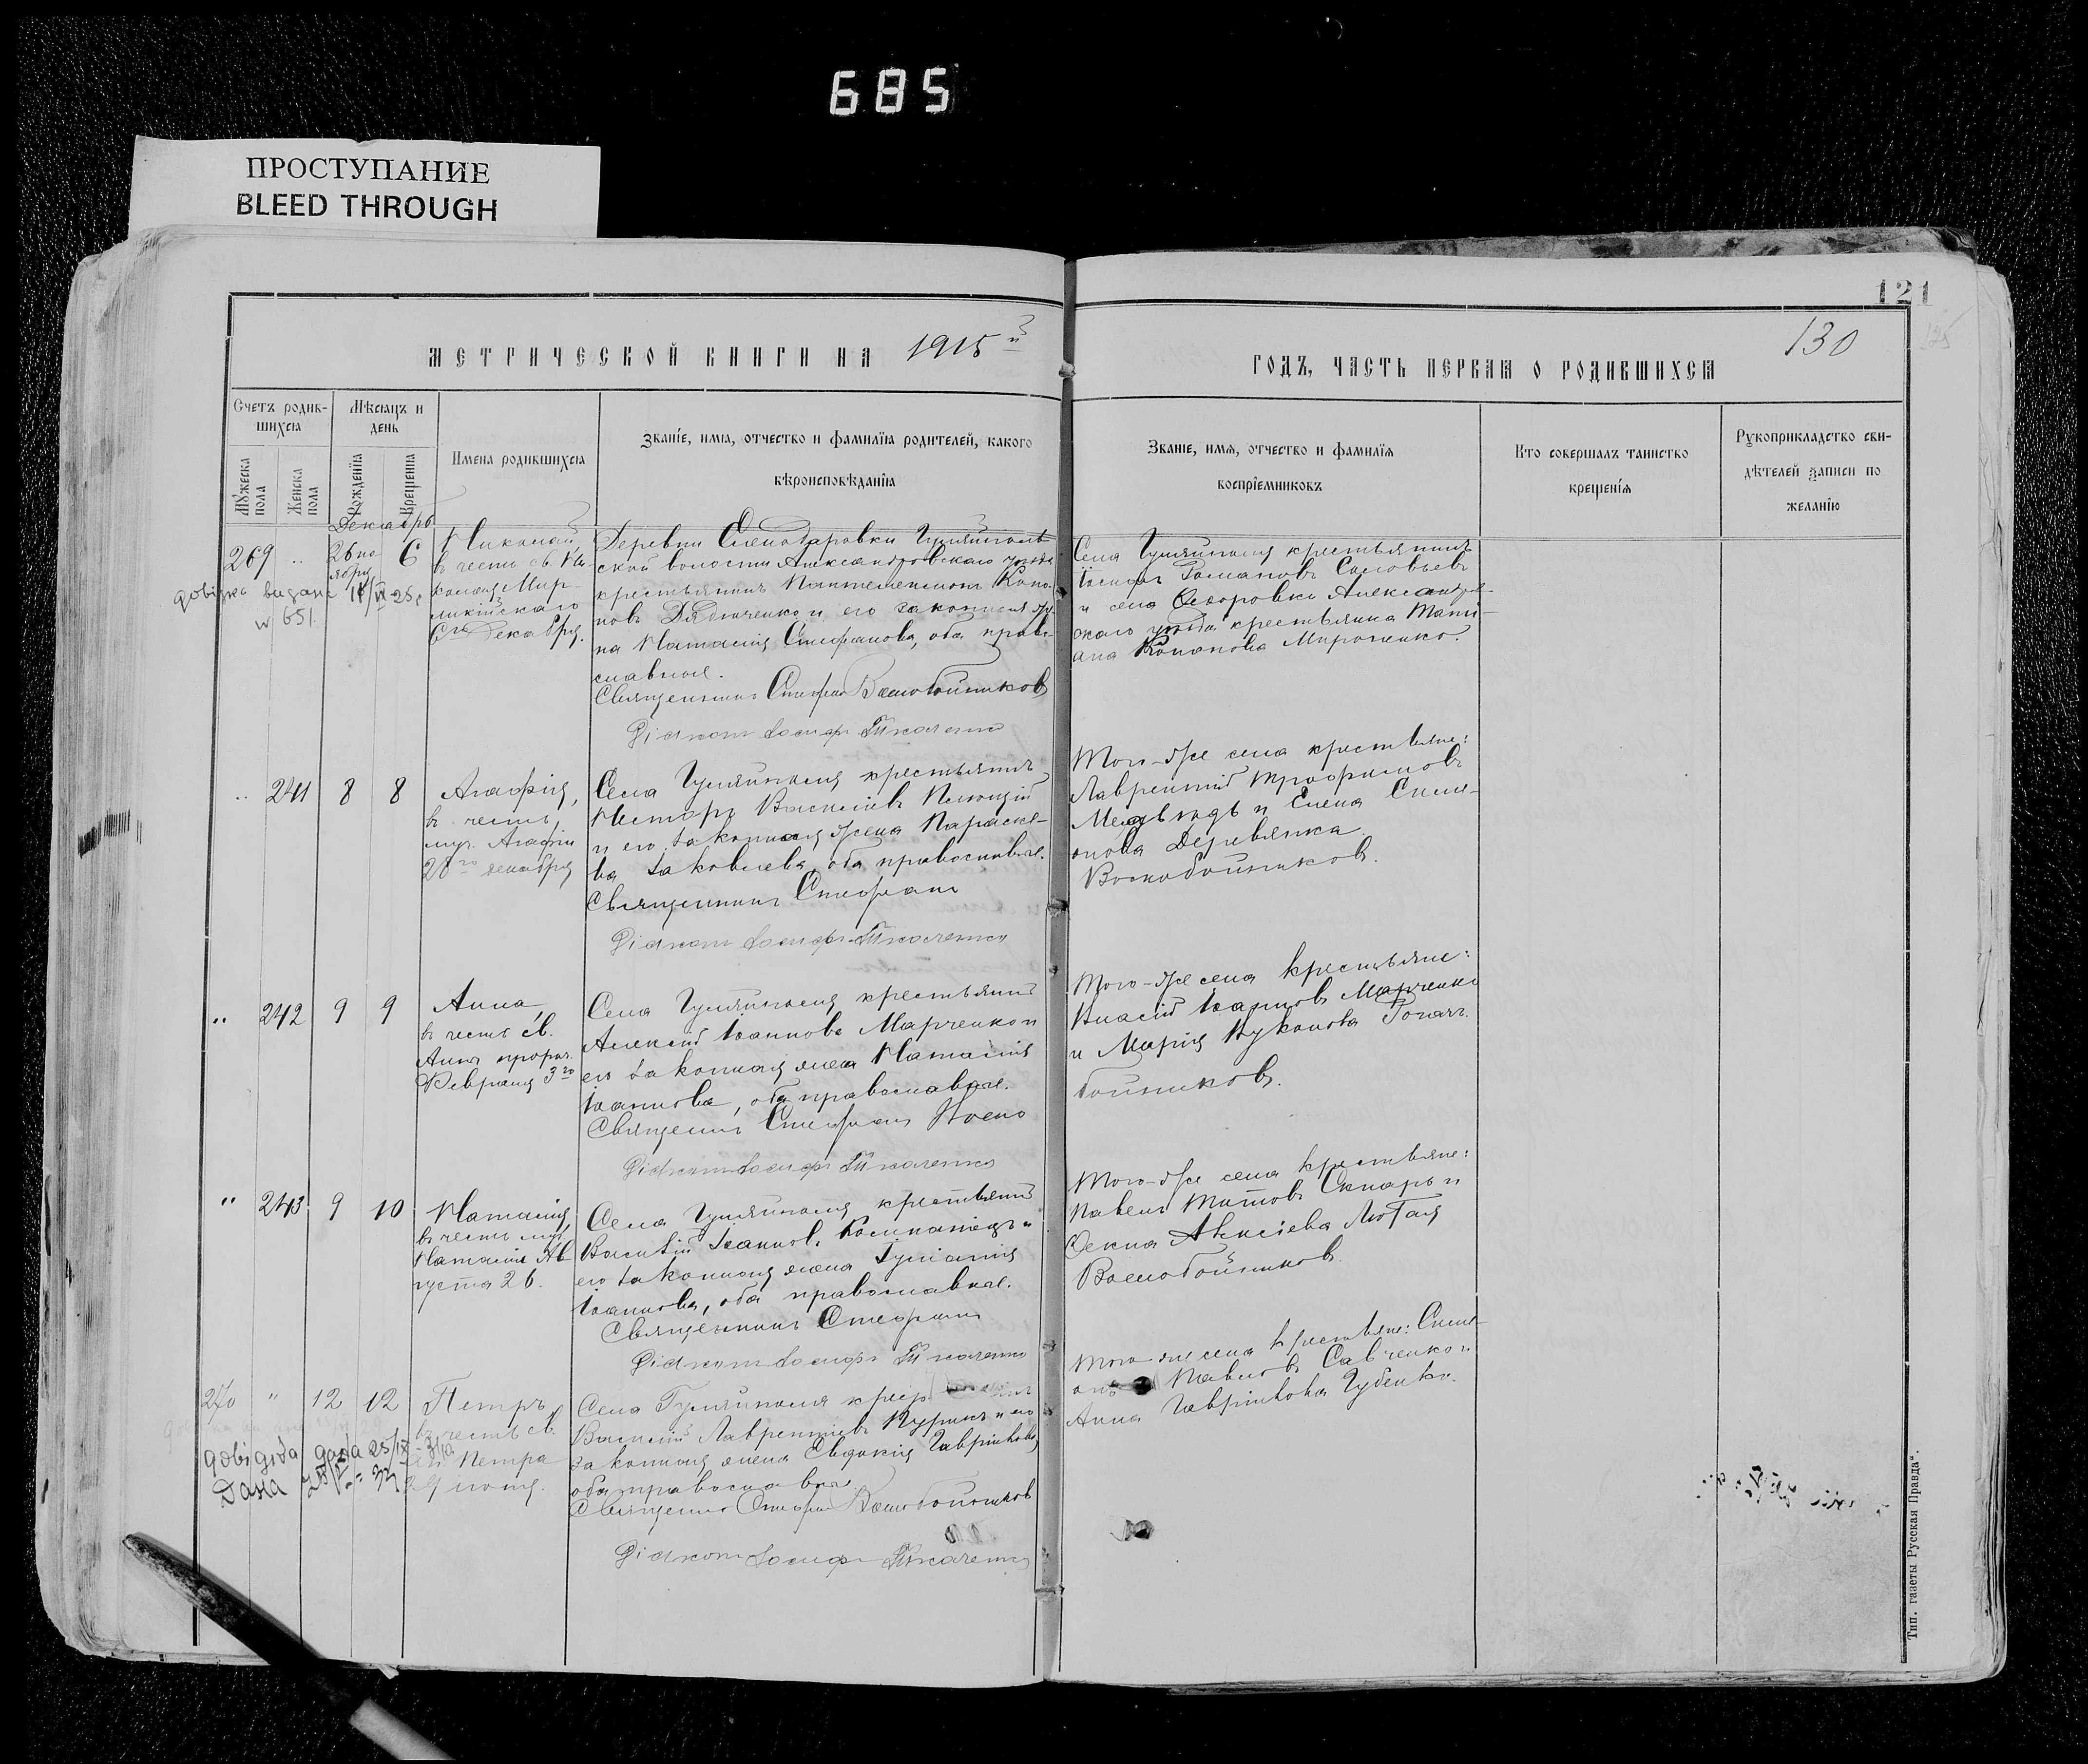 685
ПРОСТУПАНИЕ
BLEED THROUGH
121
130
МЕТРИЧЕСКОЙ КНИГИ НА 1915й
ГОДЪ, ЧАСТЬ ПЕРВАЯ О РОДИВШИХСЯ
Счетъ родив-
шихся
Мужеска
пола
Женска
пола
Мѣсяцъ и
день
Рожденїя
Крещенїя
Имена родившихся
Званїе, имя, отчество и фамилїя родителей, какого
вѣроисповѣданїя
Званїе, имя, отчество и фамилїя
воспрїемниковъ
Кто совершалъ таинство
крещенїя
Рукоприкладство сви-
дѣтелей записи по
желанїю
Декабрь
269 " 26 но
ября 6
Николай
въ честь св. Ни-
колая Мир-
ликійскаго
6го Декабря.
Деревни Гуляйполь-
ской волости Александровскаго уѣзда
крестьянинъ Пантелеимонъ Коно-
новъ и его законная же-
на Наталія Стефанова, оба право-
славные.
Священникъ Стефанъ Воскобойниковъ
Діаконъ Іосифъ Ткаченко
Села Гуляйполя крестьянинъ
Іосифъ Романовъ Соловьевъ
и села Ѳедоровки Александров-
скаго уѣзда крестьянка Тати-
ана Кононова Мироненко.
651
" 241 8 8
Агафія,
въ честь
муч. Агафіи
28го декабря
Села Гуляйполя крестьянинъ
Несторъ Василіевъ
и его законная жена Параске-
ва Іаковлева, оба православные.
Священникъ Стефанъ
Діаконъ Іосифъ Ткаченко
Того-же села крестьяне:
Лаврентій Трофимовъ
Медвѣдь и Елена Симе-
онова Деревянка.
Воскобойниковъ.
" 242 9 9
Анна,
въ честь св.
Анны пророч.
Февраля 3го
Села Гуляйполя крестьянинъ
Алексій Іоанновъ Марченко и
его законная жена Наталія
Іоаннова, оба православные.
Священникъ Стефанъ Воско
Діаконъ Іосифъ Ткаченко
Того-же села крестьяне:
Власій Іоанновъ Марченко
и Марія Лукьянова
бойниковъ.
" 243 9 10
Наталія,
въ честь муч.
Наталіи Ав
густа 26.
Села Гуляйполя крестьянинъ
Василій Іоанновъ и
его законная жена Іуліанія
Іоаннова, оба православные.
Священникъ Стефанъ
Діаконъ Іосифъ Ткаченко
Того-же села крестьяне:
Павелъ Титовъ Скляръ и
Ѳекла Алексіева Лютая
Воскобойниковъ
270 " 12 12
Петръ,
въ честь св.
Петра
29 іюня.
Села Гуляйполя
Василій Лаврентіевъ и его
законная жена Евдокія Гавріилова,
оба православные
Священникъ Стефанъ Воскобойниковъ
Діаконъ Іосифъ Ткаченко
Того-же села крестьяне: Симе-
онъ Павловъ Савченко и
Анна Гавріилова Губенко.
Дана
Тип. газеты „Русская Правда“.